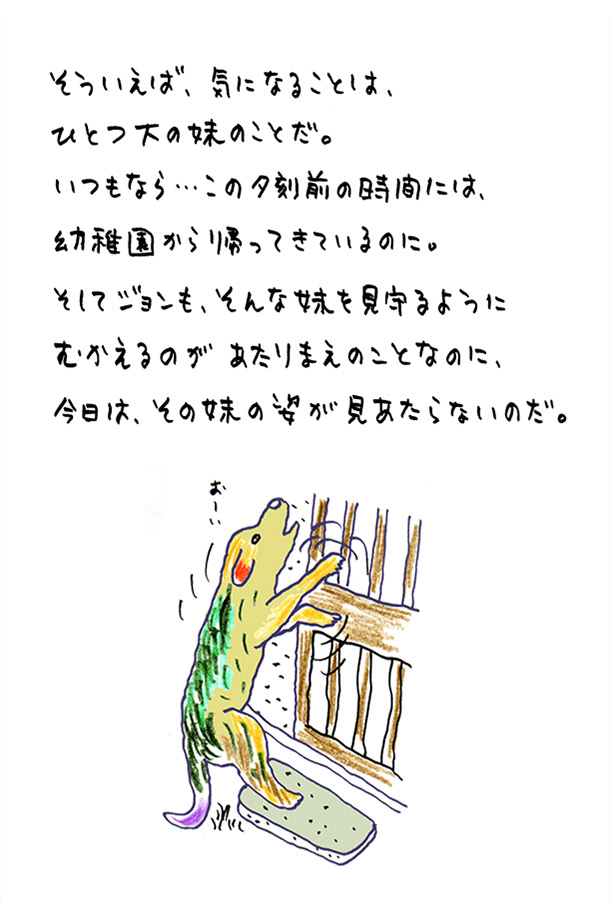 そういえば、気になることは、
ひとつ大の妹のことだ。
いつもなら…この夕刻前の時間には、
幼稚園から帰ってきているのに。
そしてジョンも、そんな妹を見守るように
むかえるのが あたりまえのことなのに、
今日は、その妹の姿が見あたらないのだ。
おーい